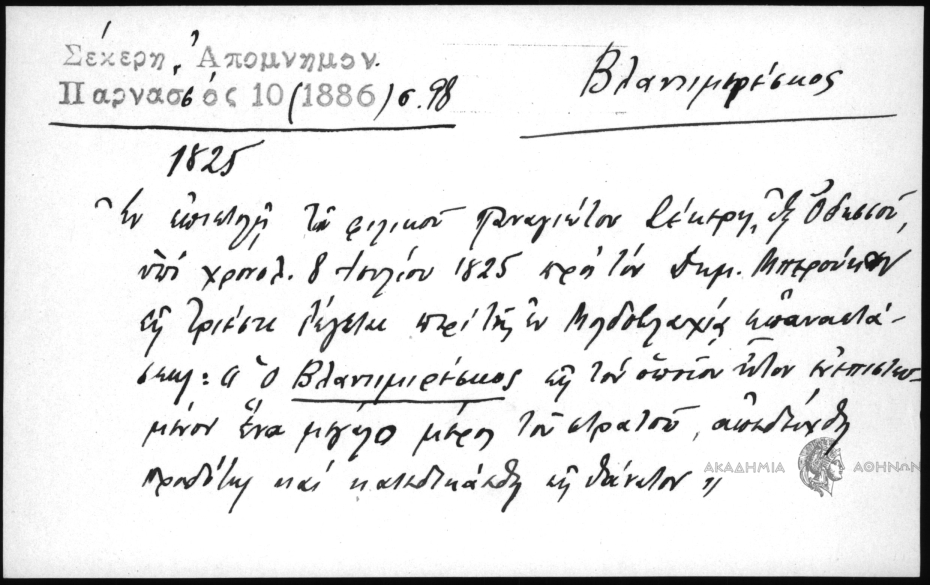 Σέκερη, Ἀπομνημον.
Παρνασσός 10 (1886) σ. 98
Βλαντιμιρέσκος
1825
Ἐν ἐπιστολῇ τοῦ φιλικοῦ Παναγιώτου Σέκερη, ἐξ Ὀδησσοῦ,
ὑπό χρονολ. 8 Ἰουλίου 1825 πρός τόν Δημ. Μπερούκαν
εἰς Τριέστι λέγεται περί τῆς ἐν Μολδοβλαχίᾳ ἐπαναστά-
σεως: « ὁ Βλαντιμιρέσκος εἰς τόν ὁποῖον ἦτον ἐμπιστευ-
μένον ἕνα μεγάλο μέρος τοῦ στρατοῦ, ἀπεδείχθη
προδότης καί κατεδικάσθη εἰς θάνατον »
ΑΚΑΔΗΜΙΑ ΑΘΗΝΩΝ